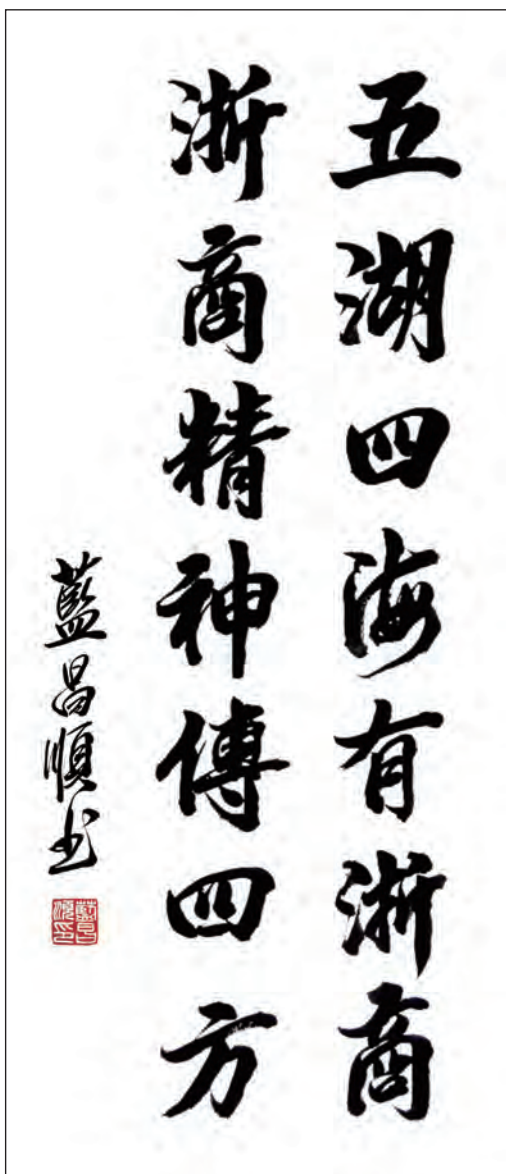 五湖四海有浙商
浙商精神傳四方
藍昌順书
藍昌順印